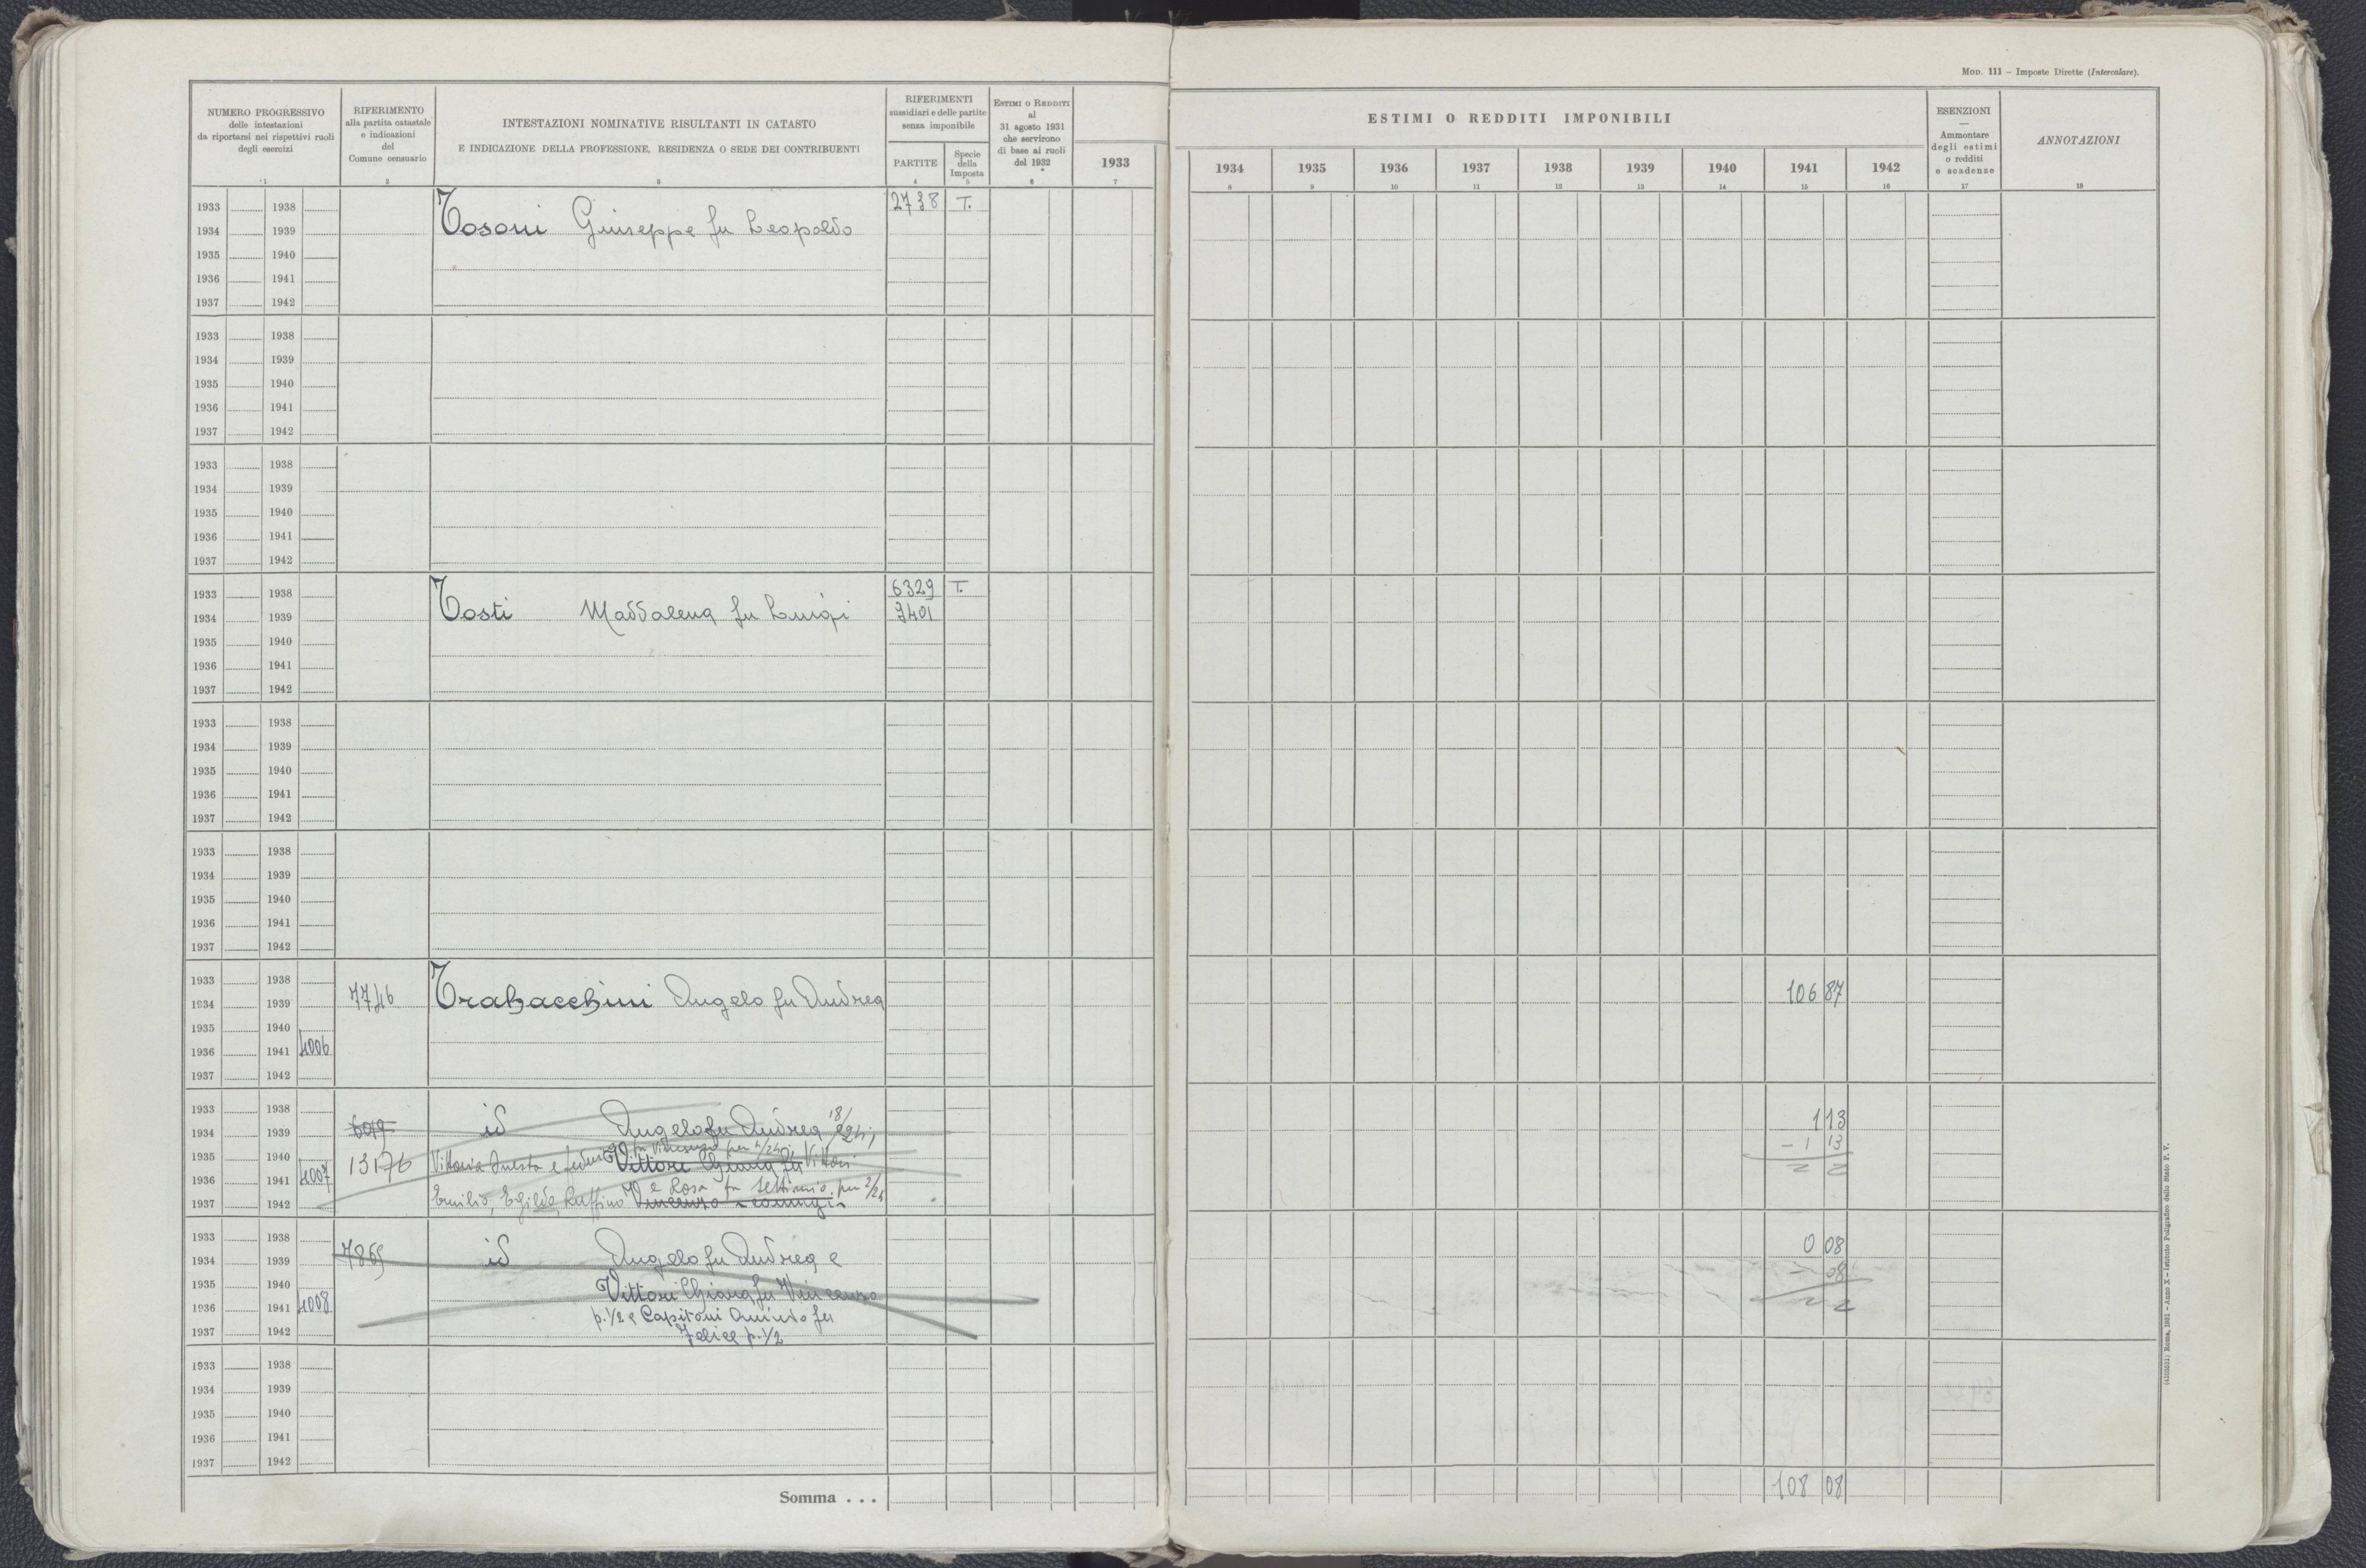 MOD. 111 – Imposte Dirette (Intercalare).
NUMERO PROGRESSIVO
delle intestazioni
da riportarsi nei rispettivi ruoli
degli esercizi
1
RIFERIMENTO
alla partita catastale
e indicazioni
del
Comune censuario
2
INTESTAZIONI NOMINATIVE RISULTANTI IN CATASTO
E INDICAZIONE DELLA PROFESSIONE, RESIDENZA O SEDE DEI CONTRIBUENTI
3
RIFERIMENTI
sussidiari e delle partite
senza imponibile
PARTITE
4
Specie
della
Imposta
5
ESTIMI O REDDITI
al
31 agosto 1931
che servirono
di base ai ruoli
del 1932
6
1933
7
ESTIMI O REDDITI IMPONIBILI
1934 1935 1936 1937 1938 1939 1940 1941 1942
8 9 10 11 12 13 14 15 16
ESENZIONI
—
Ammontare
degli estimi
o redditi
e scadenze
17
ANNOTAZIONI
18
1933 1938 2738 T.
1934 1939 Tosoni Giuseppe fu Leopoldo
1935 1940
1936 1941
1937 1942
1933 1938
1934 1939
1935 1940
1936 1941
1937 1942
1933 1938
1934 1939
1935 1940
1936 1941
1937 1942
1933 1938 6329 T.
1934 1939 Tosti Maddalena fu Luigi 9401
1935 1940
1936 1941
1937 1942
1933 1938
1934 1939
1935 1940
1936 1941
1937 1942
1933 1938
1934 1939
1935 1940
1936 1941
1937 1942
1933 1938
1934 1939 7746 Trabacchini Angelo fu Andrea 106 87
1935 1940
1936 1941 4006
1937 1942
1933 1938 1 13
1934 1939 id Angelo fu Andrea 18/24;
1935 1940 13176 Vittoria e fu Vincenzo per 4/24; Vittori Chiara fu Vittori – 1 13
1936 1941 4007
1937 1942 Emilio, Egilde, Ruffino e Rosa fu Settimio per 2/24 Vincenzo
1933 1938 0 08
1934 1939 7869 id Angelo fu Andrea e
1935 1940 – 08
1936 1941 4008 Vittori Chiara fu Vincenzo
p. 1/2 e Capitoni Quinto fu
1937 1942 Felice p. 1/2
1933 1938
1934 1939
1935 1940
1936 1941
1937 1942
Somma . . . 108 08
(4105031) Roma, 1931 - Anno X - Istituto Poligrafico dello Stato P. V.